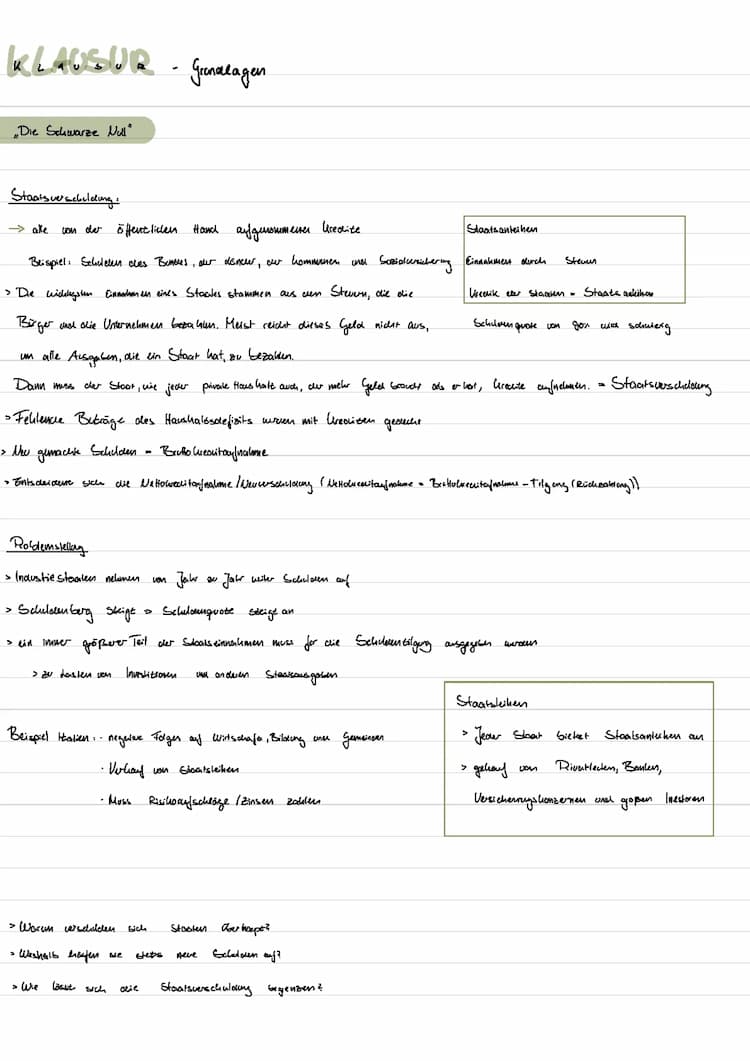 KLAUSUR - Grundlagen
„Die Schwarze Null"
Staatsverschuldung:
→ alle von der öffentlichen Hand aufgenommener Kredite
Beispiel: Schulden des Bundes, der Länder, der Kommunen und Sozialversicherung
> Die wichtigsten Einnahmen eines Staates stammen aus den Steuern, die die
Bürger und die Unternehmen bezahlen. Meist reicht dieses Geld nicht aus,
um alle Ausgaben, die ein Staat hat, zu bezahlen.
Staatsanleihen
Einnahmen durch Steuern
Kredite der Staaten = Staatsanleihen
Schuldenquote von 90% wird schwierig
Dann muss der Staat, wie jeder private Haushalt auch, der mehr Geld braucht als er hat, Kredite aufnehmen. = Staatsverschuldung
> Fehlende Beträge des Haushaltsdefizits werden mit Krediten gedeckt
> Neu gemachte Schulden = Bruttokreditaufnahme
> Entscheidend sich die Nettokreditaufnahme/Neuverschuldung (Nettokreditaufnahme = Bruttokreditaufnahme - Tilgung (Rückzahlung))
Problemstellung
> Industriestaaten nehmen von Jahr zu Jahr weiter Schulden auf
> Schuldenberg steigt → Schuldenquote steigt an
> ein immer größerer Teil der Staatseinnahmen muss für die Schuldentilgung ausgegeben werden
> zu Lasten von Investitionen und anderen Staatsausgaben
Beispiel Italien: - negative Folgen auf Wirtschaft, Bildung und Gemeinden
· Verkauf von Staatsleihen
· Muss Risikoaufschläge/Zinsen zahlen
Staatsleihen
> Jeder Staat bietet Staatsanleihen an
> gekauft von Privatleuten, Banken,
Versicherungskonzernen und großen Investoren
> Warum verschulden sich Staaten überhaupt?
> Weshalb häufen sie stets neue Schulden auf?
> Wie lässt sich die Staatsverschuldung begrenzen?